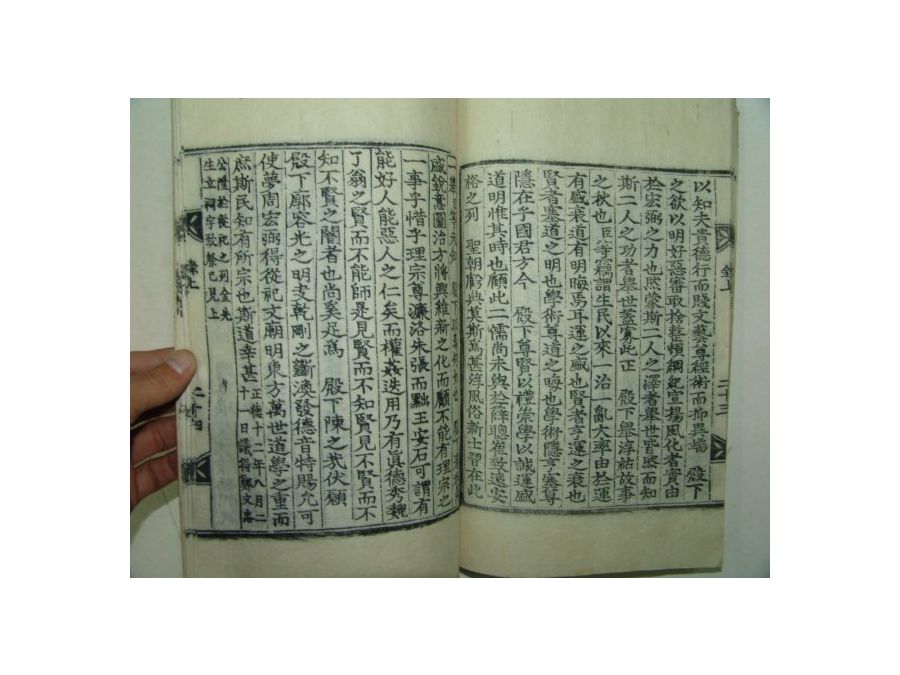 以知夫貴德行而賤文藝尊經術而抑異端 殿下
之欲以明好惡審取捨整頓綱紀宣揚風化者實由
於宏弼之力也然蒙斯二人之澤者擧世皆然而知
斯二人之功者擧世盖寡此正 殿下擧淳祐故事
之秋也臣等竊謂生民以來一治一亂大率由於運
有盛衰道有明晦焉耳運之盛也賢者亨運之衰也
賢者塞道之明也學術尊道之晦也學術隱亨塞尊
隱在乎國君方今 殿下尊賢以禮崇學以誠運盛
道明惟其時也顧此二儒尚未與於薛聰崔致遠安
裕之列 聖朝虧典莫斯爲甚淳風俗新士習在此
錄上
二十三
盛銳意圖治方將興維新之化而顧不能有理宗之
一事乎惜乎理宗尊濂洛朱張而黜王安石可謂有
能好人能惡人之仁矣而權姦迭用乃有眞德秀魏
了翁之賢而不能師是見賢而不知賢見不賢而不
知不賢之闇者也尚奚足爲 殿下陳之㢤伏願
殿下廓容光之明叏乾剛之斷渙發德音特賜允可
使夢周宏弼得從祀文廟明東方萬世道學之重而
庶斯民知有所宗也斯道幸甚 正德十二年八月二十日議得鄭文忠
公陞於從祀之列金先
生立祠宇致祭已見上
錄上
二十四